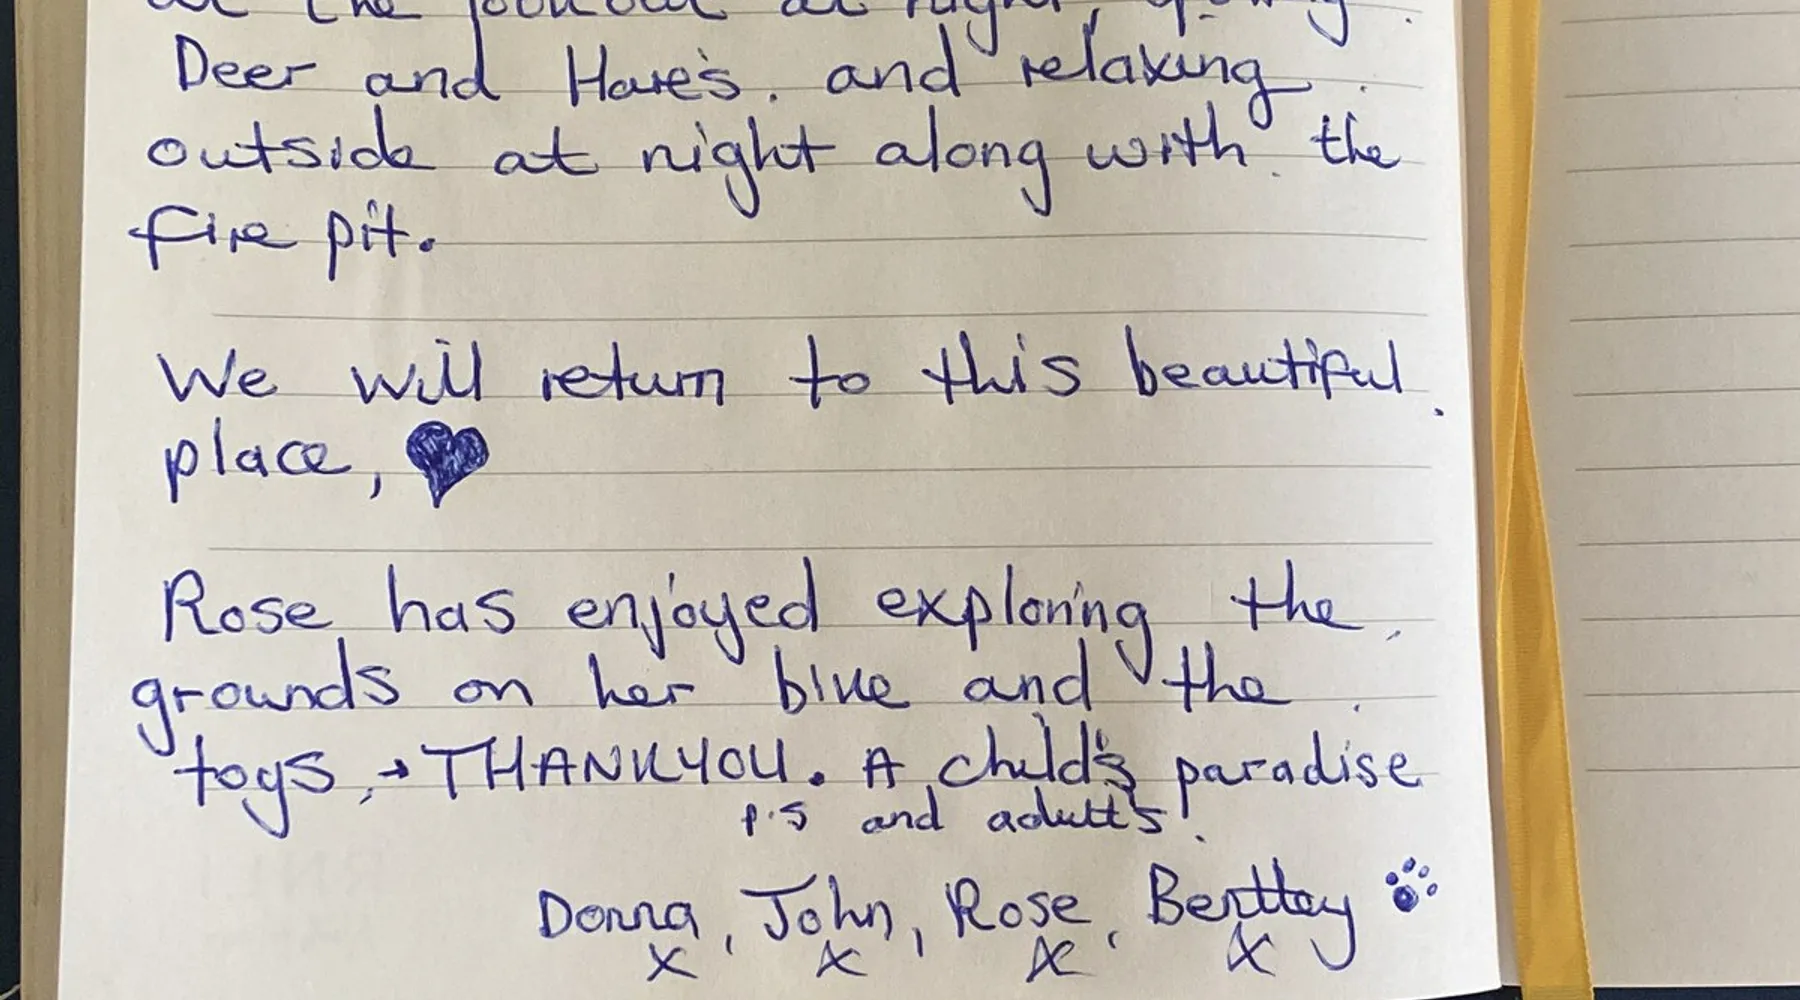 at the lookout at night,
Deer and Hare's. and relaxing
outside at night along with the
fire pit.
We will return to this beautiful
place,
Rose has enjoyed exploring the
grounds on her bike and the
toys, → THANKYOU. A child's paradise
p.s and adult's!
Donna, John, Rose, Bentley
x x x x